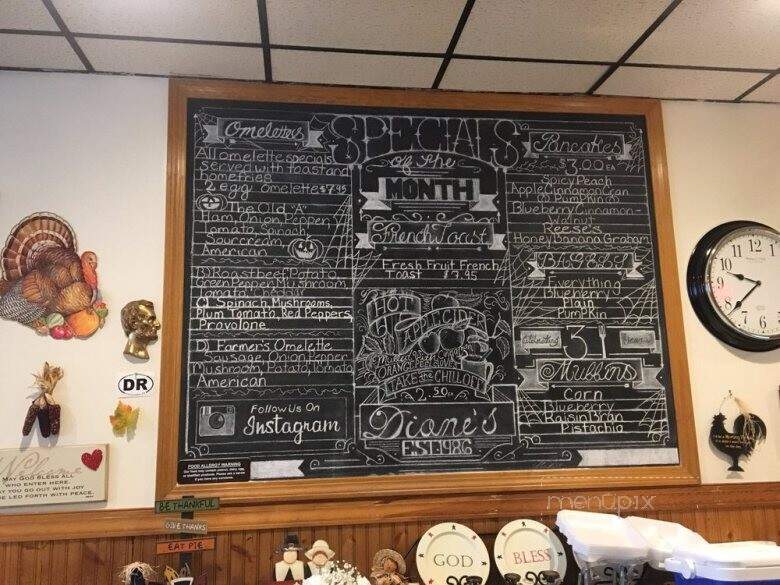 SPECIALS
of the
MONTH
Omelettes
All omelette specials
served with toast and
homefries
2 egg omelette $7.95
The Old "A"
Ham, Onion, Pepper
Tomato, Spinach,
Sour cream,
American
B) Roast beef, Potato,
Green Pepper, Mushroom,
C) Spinach, Mushrooms,
Plum Tomato, Red Peppers,
Provolone
D) Farmer's Omelette
Sausage, Onion, Pepper
Mushroom, Potato, Tomato
American
Follow Us On
Instagram
FOOD ALLERGY WARNING
French Toast
Fresh Fruit French
Toast 7.95
HOT
APPLE CIDER
ORANGE PEEL
TAKE the CHILL OFF
2.50
Diane's
EST. 1986
Pancakes
$3.00 EA
Spicy Peach
Apple Cinnamon Cran
Pumpkin
Blueberry Cinnamon-
Walnut
Reese's
Honey Banana Graham
BAGELS
Everything
Blueberry
Plain
Pumpkin
Celebrating 31 Years
Muffins
Corn
Blueberry
Raisin Bran
Pistachio
DR
Welcome
MAY GOD BLESS ALL
WHO ENTER HERE.
MAY YOU GO OUT WITH JOY
BE LED FORTH WITH PEACE.
BE THANKFUL
GIVE THANKS
EAT PIE
GOD
BLESS
10 11 12 1
9
8 7 6 5
menupix